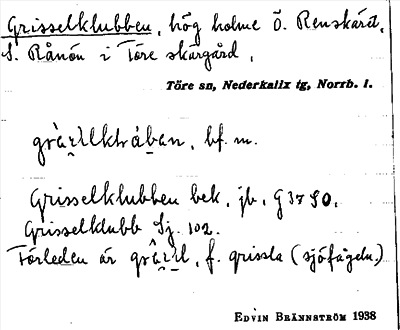 Grisselklubben, hög holme Ö. Renskäret,
S. Rånön i Töre skärgård.
Töre sn, Nederkalix tg, Norrb. l.
bf. m.
Grisselklubben bek. jb. G 3790.
Grisselklubb Sj. 102.
Förleden är f. grissla (sjöfågeln.)
EDVIN BRÄNNSTRÖM 1938